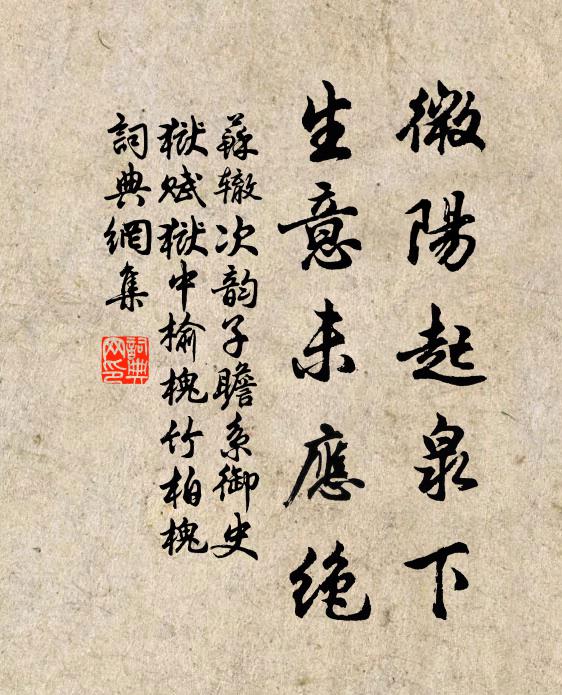 微陽起泉下
生意未應絶
蘇辙次韵子瞻系御史
獄赋獄中榆槐竹柏槐
詞典網集
詞典
网印